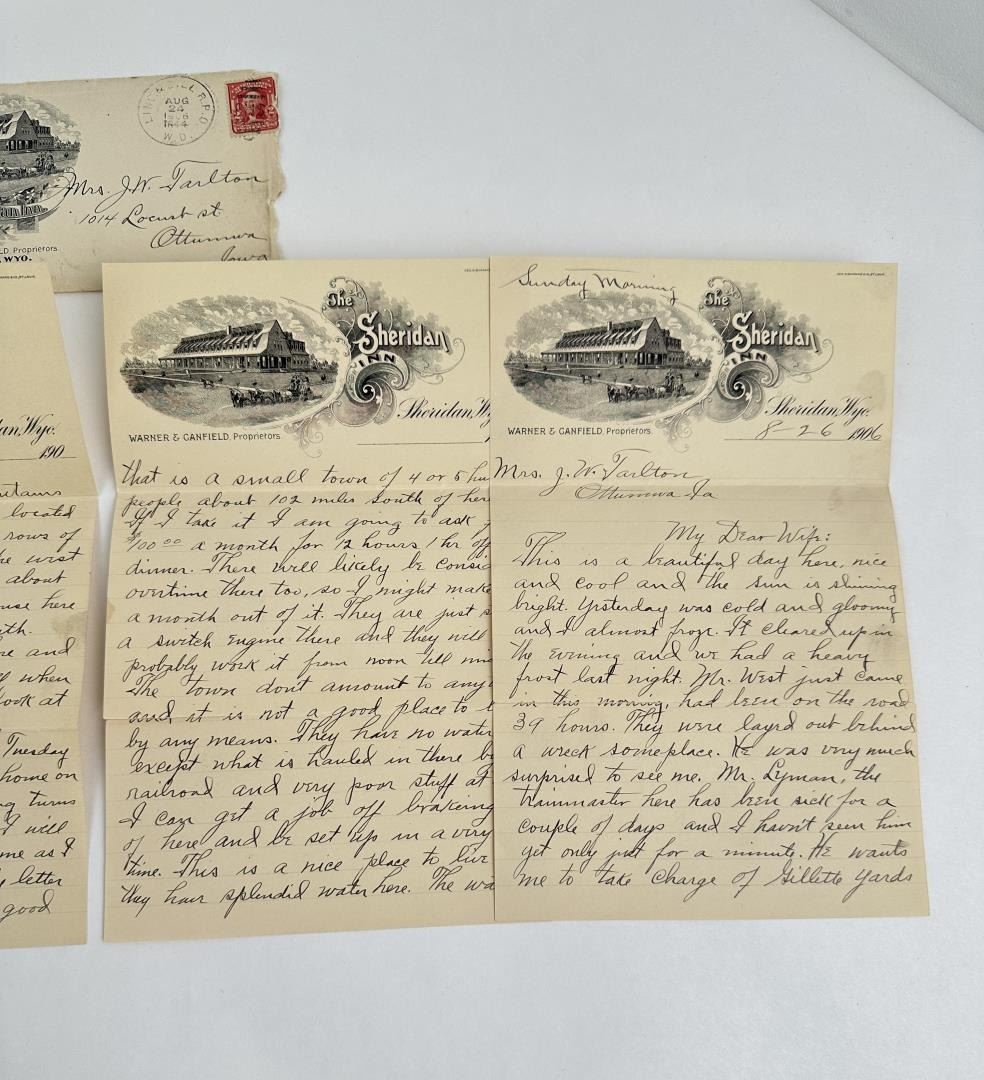 AUG
24
W.D.
Mrs. J. W. Tarlton
1014 Locust st.
Ottumwa
Iowa
LD, Proprietors.
WYO.
Sunday Morning
The
Sheridan
INN
WARNER & CANFIELD, Proprietors.
Sheridan, Wyo.
8-26 1906
Mrs. J. W. Tarlton
Ottumwa Ia
My Dear Wife:
This is a beautiful day here, nice
and cool and the sun is shining
bright. Yesterday was cold and gloomy
and I almost froze. It cleared up in
the evening and we had a heavy
frost last night. Mr. West just came
in this morning, had been on the road
39 hours. They were layed out behind
a wreck someplace. He was very much
surprised to see me. Mr. Lyman, the
trainmaster here has been sick for a
couple of days and I havn't seen him
yet only just for a minute. He wants
me to take charge of Gillette yards
The
Sheridan
INN
WARNER & CANFIELD, Proprietors.
Sheridan, Wy
that is a small town of 4 or 5 hu
people about 102 miles South of her
If I take it I am going to ask
$100.00 a month for 12 hours, 1 hr off
dinner. There will likely be consid
overtime there too, so I might make
a month out of it. They are just s
a switch engine there and they will
probably work it from noon till mi
The town dont amount to any
and it is not a good place to
by any means. They have no water
except what is hauled in there b
railroad and very poor stuff at
I can get a job off braking
of here and be set up in a very
time. This is a nice place to live
they have splendid water here. The wa
an, Wyo.
190
ntains
located
rows of
he west
about
use here
ith.
re and
ll when
look at
Tuesday
home on
ng turns
I will
me as I
y letter
good